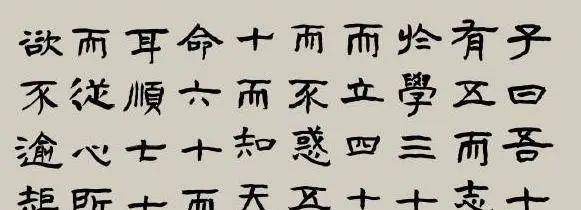 子曰吾十
有五而志
於學三十
而立四十
而不惑五
十而知天
命六十而
耳順七十
而從心所
欲不逾矩